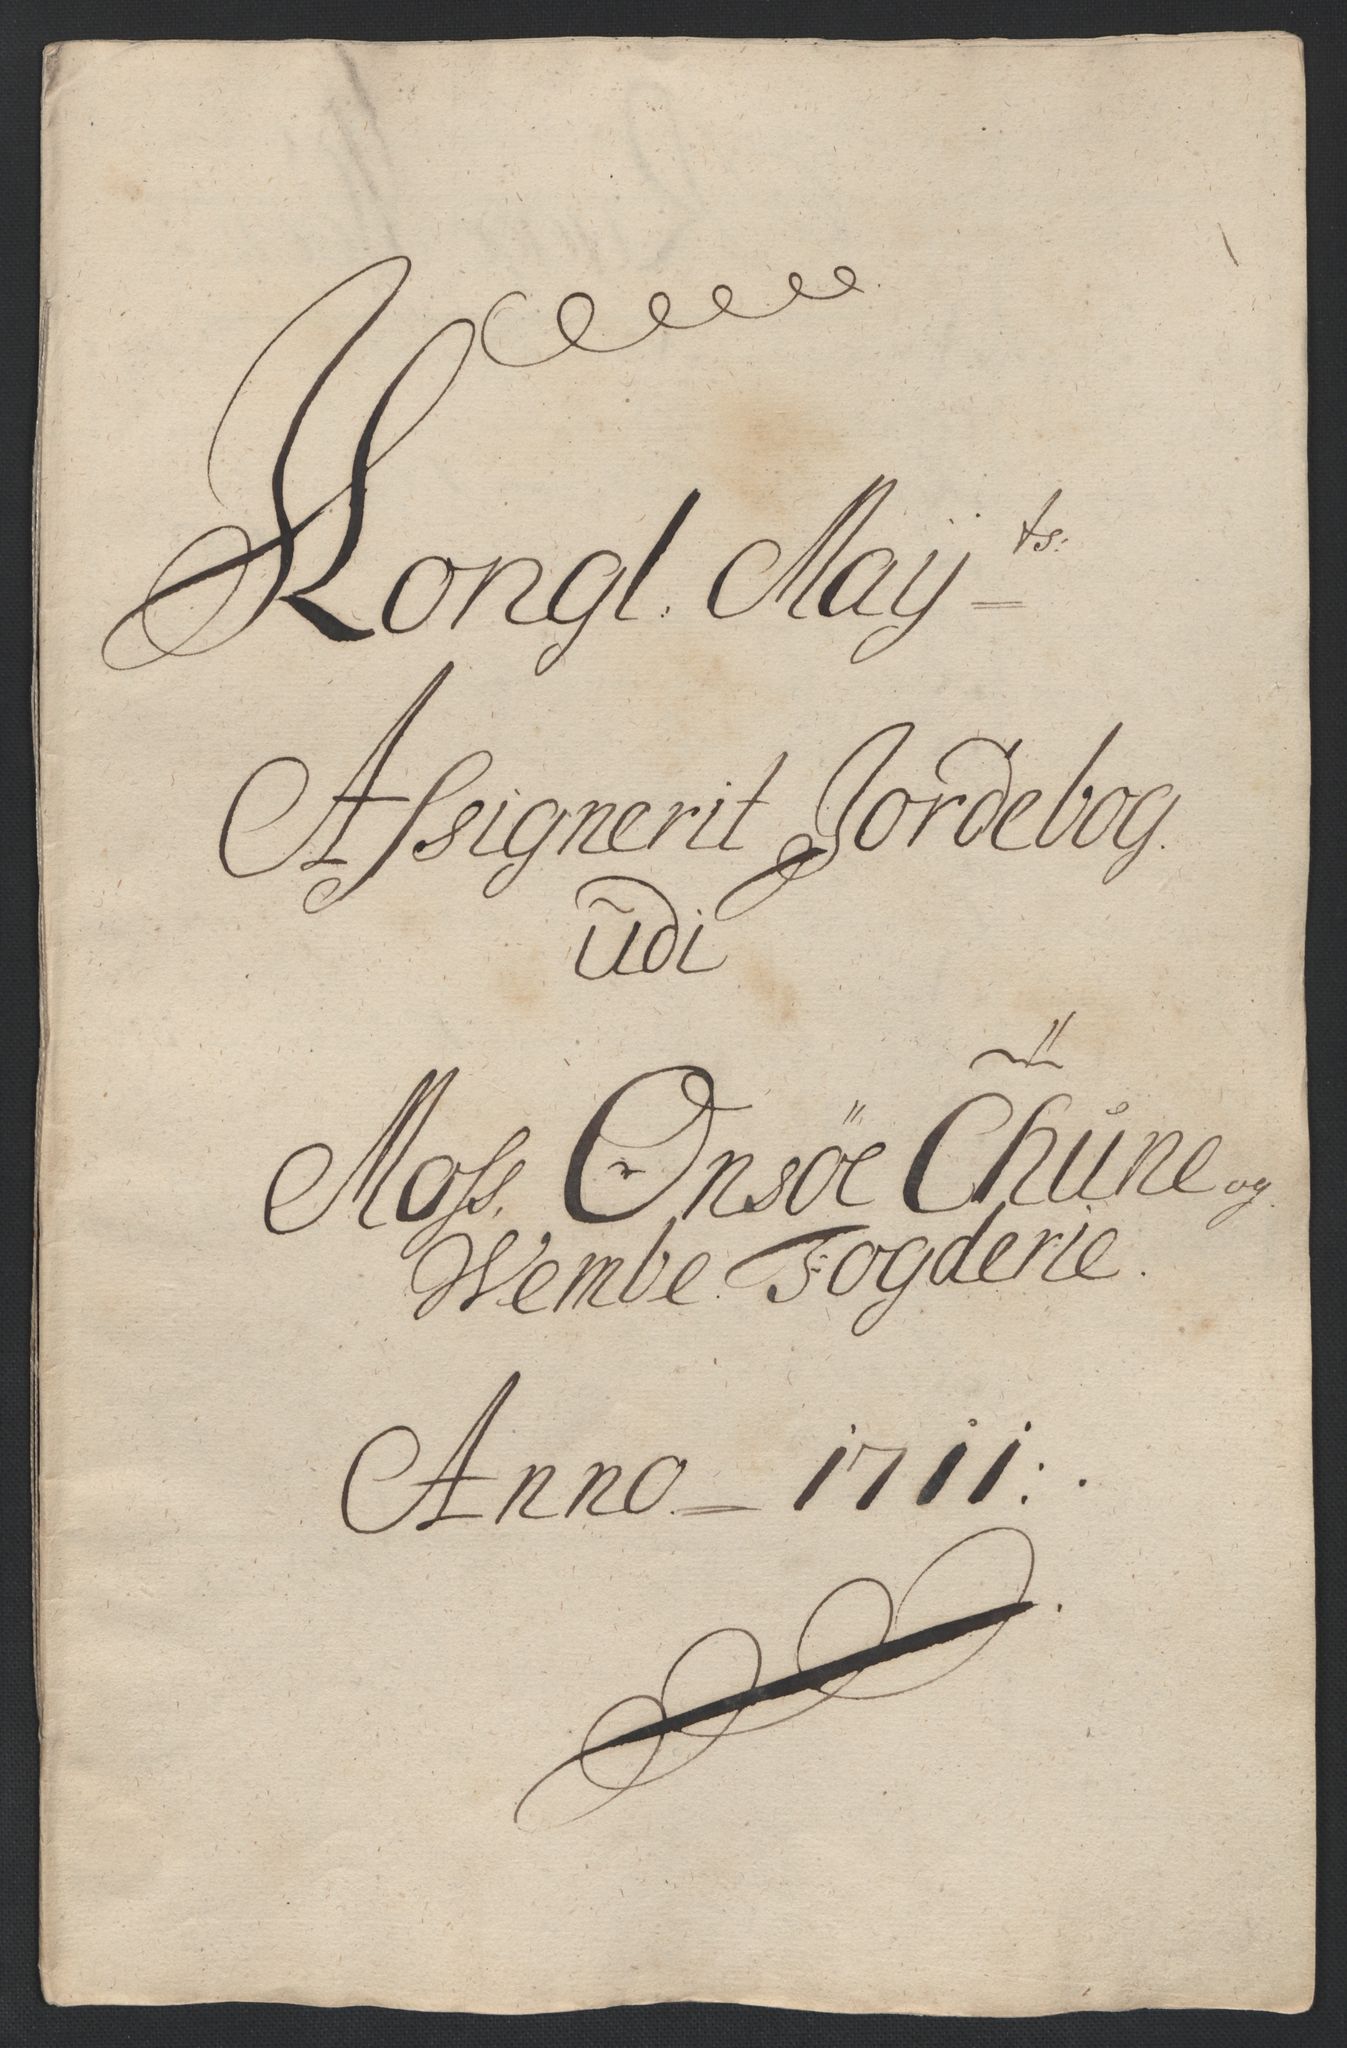 Kongl. Maÿ^ts:
Assignerit Jordebog.
udi
Moss, Onsöe Thune og
Wembe Fogderie.
Anno – 1711:.